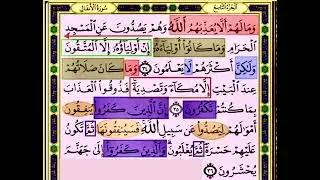 الجزء التاسع سورة الأنفال
وَمَا لَهُمْ أَلَّا يُعَذِّبَهُمُ ٱللَّهُ وَهُمْ يَصُدُّونَ عَنِ ٱلْمَسْجِدِ
ٱلْحَرَامِ وَمَا كَانُوٓا۟ أَوْلِيَآءَهُۥٓ إِنْ أَوْلِيَآؤُهُۥٓ إِلَّا ٱلْمُتَّقُونَ
وَلَٰكِنَّ أَكْثَرَهُمْ لَا يَعْلَمُونَ ٣٤ وَمَا كَانَ صَلَاتُهُمْ
عِندَ ٱلْبَيْتِ إِلَّا مُكَآءً وَتَصْدِيَةً فَذُوقُوا۟ ٱلْعَذَابَ
بِمَا كُنتُمْ تَكْفُرُونَ ٣٥ إِنَّ ٱلَّذِينَ كَفَرُوا۟ يُنفِقُونَ
أَمْوَٰلَهُمْ لِيَصُدُّوا۟ عَن سَبِيلِ ٱللَّهِ فَسَيُنفِقُونَهَا ثُمَّ تَكُونُ
عَلَيْهِمْ حَسْرَةً ثُمَّ يُغْلَبُونَ وَٱلَّذِينَ كَفَرُوٓا۟ إِلَىٰ جَهَنَّمَ
يُحْشَرُونَ ٣٦